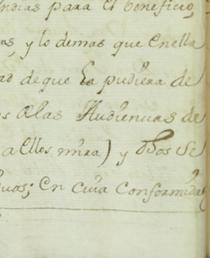 Indias para el beneficio,
as, y lo demas que en ella
ad de que la pudiera de
s a las Audiencias de
a elles mira) y Dos Se
uas; en cuia conformida